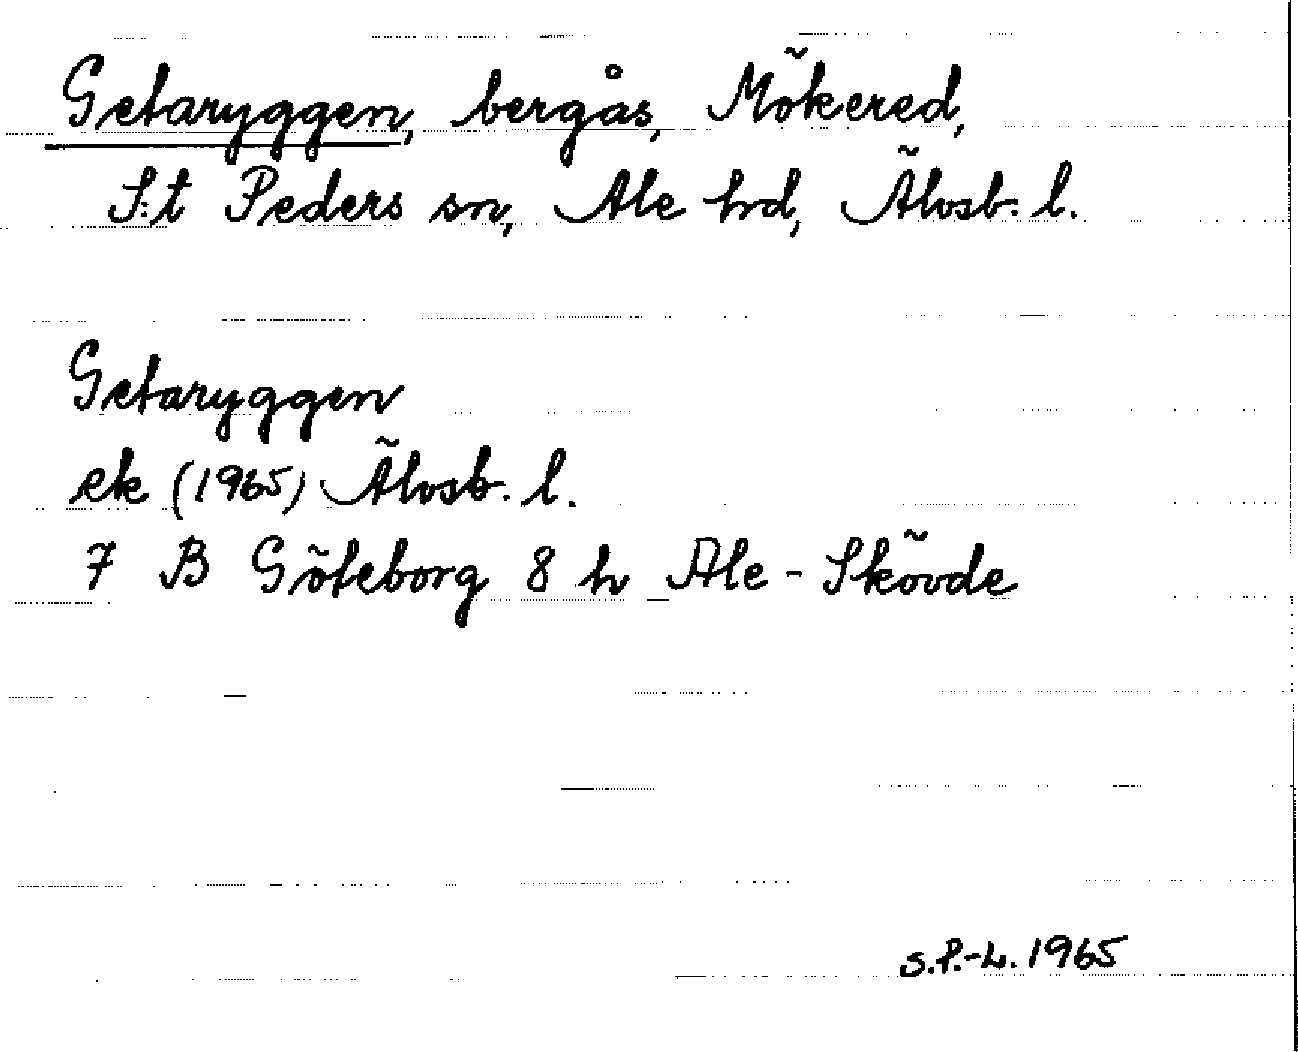 Getaryggen, bergås, Mökered,
S:t Peders sn, Ale hd, Älvsb. l.
Getaryggen
ek (1965) Älvsb. l.
7 B Göteborg 8 h Ale - Skövde
S.P.-L. 1965